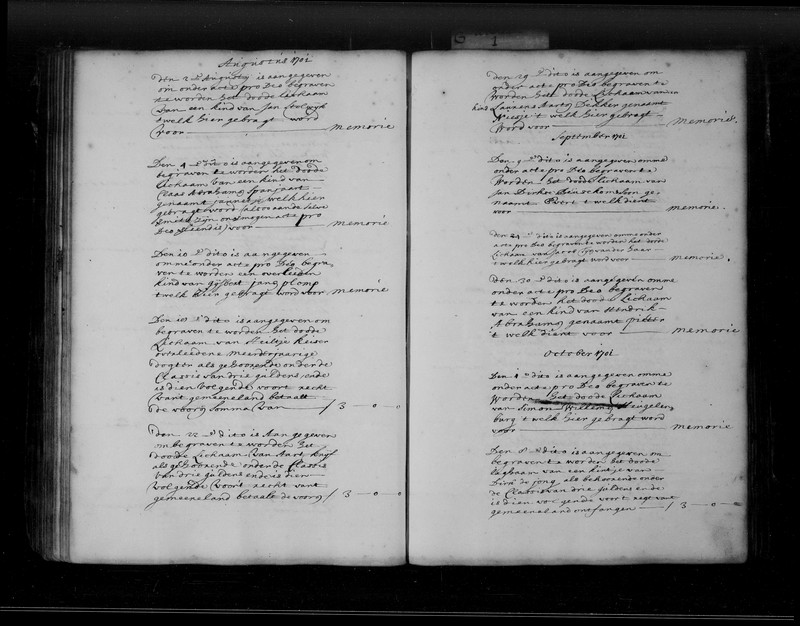 Augustus 1701
Den 2 d Augustij is aangegeven
om onder acte pro Deo begraven
te worden het doode Lichaam
van een kind van Jan
twelk hier gebragt word
voor memorie
Den 4 dito is aangegeven om
begraven te worden het doode
Lichaam van een kind van
Claas Abrahamsz Spanjaart
genaamt Jannetje welk hier
gebragt word
onvermogen acte pro
Deo voor memorie
Den 10 dito is aangegeven
omme onder acte pro Deo begra
ven te worden een overleeden
kind van Gijsbert Jansz plomp
twelk hier gebragt word voor memorie
Den 18 dito is aangegeven om
begraven te worden het doode
Lichaam van Neeltje Keiser
overleedene meerderjaarige
dogter als gehoorende onder de
Classis van drie guldens ende
is dien volgende voor't recht
vant gemeeneland betaalt
de voorsz somma van / 3 - 0 - 0
Den 22 dito is Aangegeven
om begraven te worden het
doode Lichaam van Aart
als gehoorende onder de Classis
van drie guldens ende is dien
volgende voor't recht vant
gemeeneland betaalt de voorsz / 3 - 0 - 0
1
Den 29 dito is aangegeven om
onder acte pro Deo begraven te
worden het doode Lichaam van een
kind Laurens Aartsz Dekker genaamt
Neesje t welk hier gebragt
word voor memorie.
September 1701
Den 9 dito is aangegeven omme
onder acte pro Deo begraven te
worden het doode Lichaam van
Jan Dirksz ge
naamt Evert t welk dient
voor memorie.
Den 24 dito is aangegeven omme onder
acte pro Deo begraven te worden het doode
Lichaam van Jacob
twelk hier gebragt word voor memorie.
Den 30 dito is aangegeven omme
onder acte pro Deo begraven
te worden het doode Lichaam
van een kind van Hendrik
Abrahamsz genaamt Pieter
't welk dient voor memorie
October 1701
Den dito is aangegeven omme
onder acte pro Deo begraven te
worden het doode Lichaam
van Simon Willemsz
burg t welk hier gebragt word
voor memorie
Den 8 dito is aangegeven om
begraven te worden het doode
Lichaam van een kintje van
Dirk de Jong als behoorende onder
de Classis van drie guldens ende
is dien volgende voort regt vant
gemeeneland ontfangen / 3 - 0 -